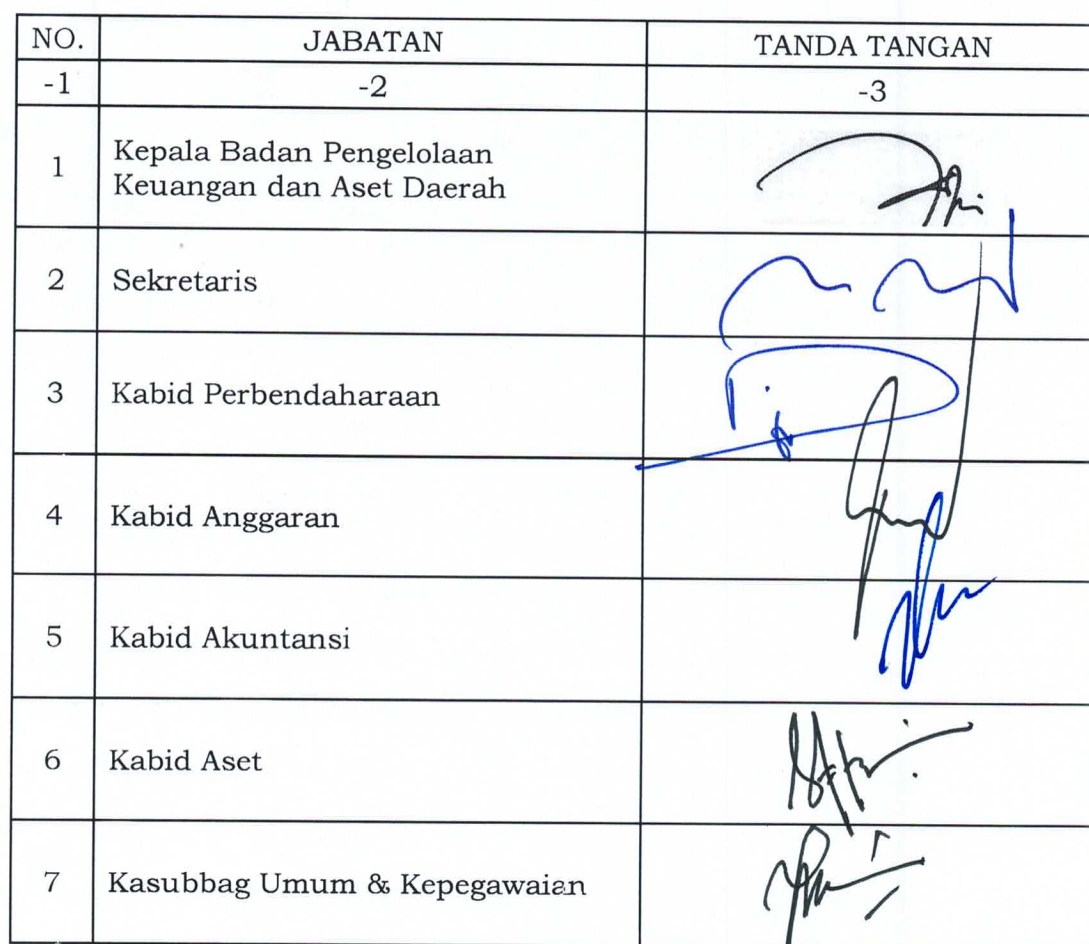 NO. JABATAN TANDA TANGAN
-1 -2 -3
1 Kepala Badan Pengelolaan
Keuangan dan Aset Daerah
2 Sekretaris
3 Kabid Perbendaharaan
4 Kabid Anggaran
5 Kabid Akuntansi
6 Kabid Aset
7 Kasubbag Umum & Kepegawaian